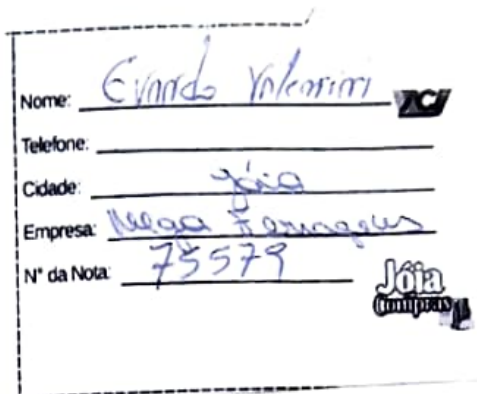 Nome: Evando Valentini
ACJ
Telefone:
Cidade: Jóia
Empresa: Mega Ferragens
N° da Nota: 75579
Jóia
Compras